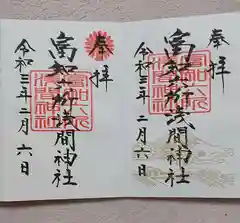 奉拝
富知六所浅間神社
令和三年二月六日
奉拝
富知六所浅間神社
令和三年二月六日